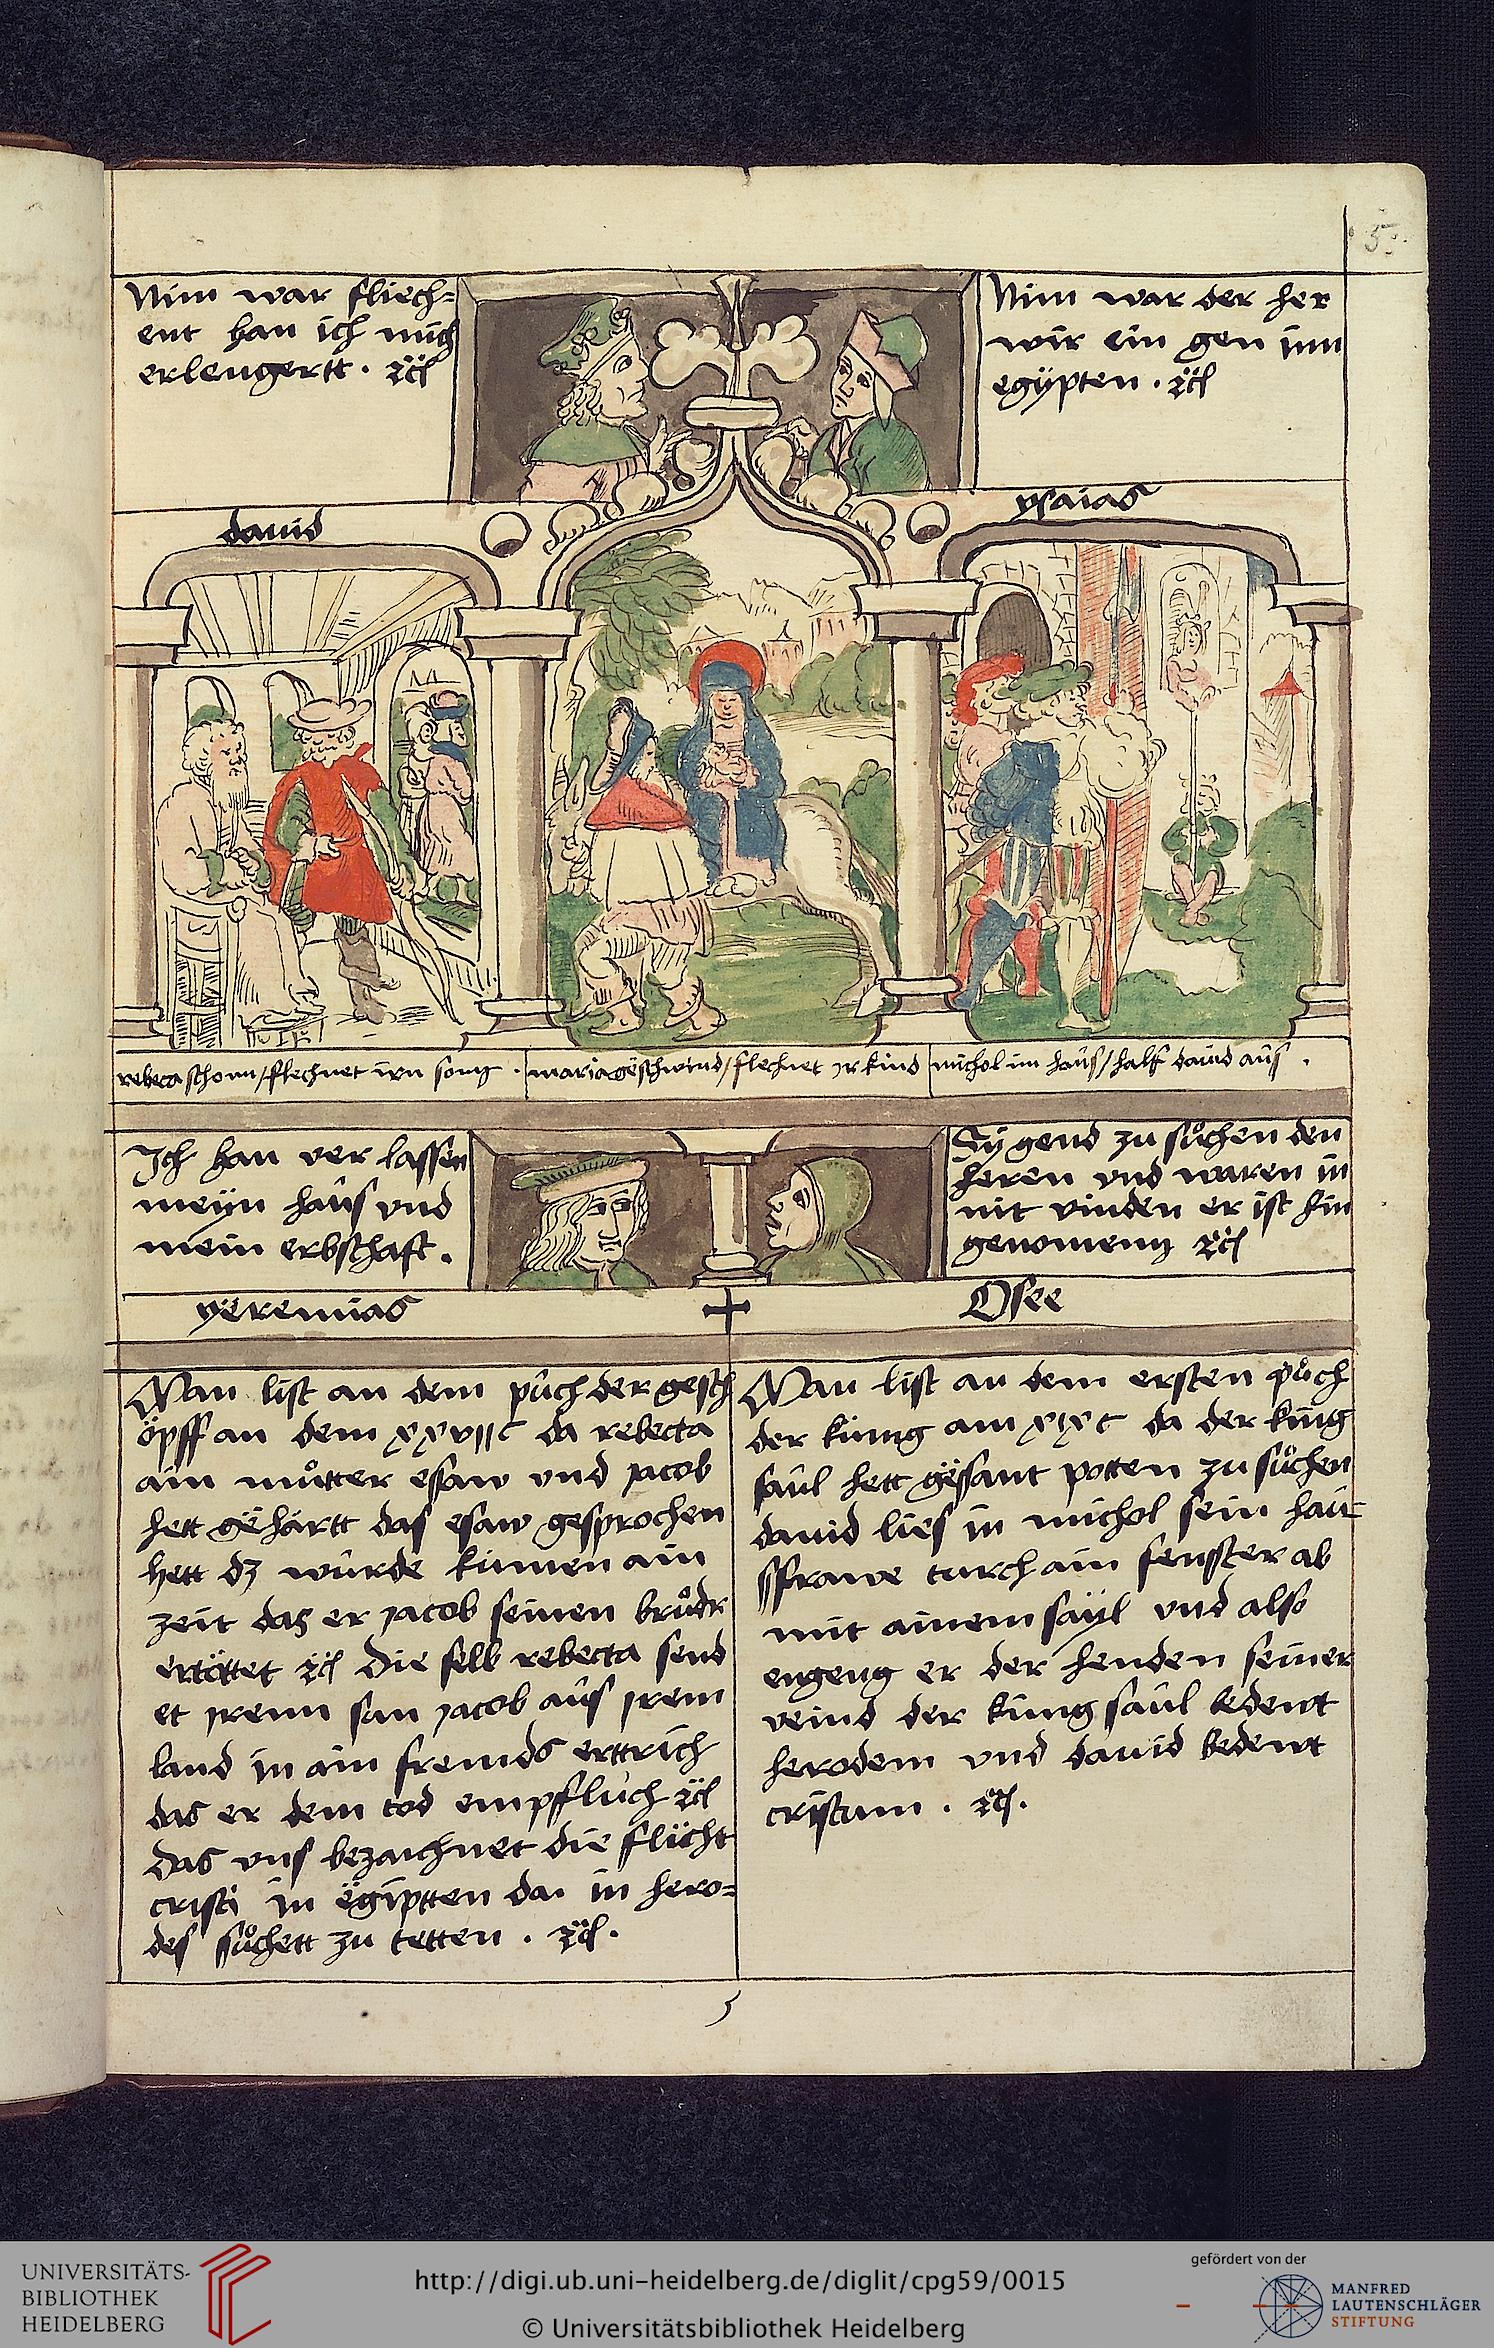 5
Nim war fliech=
ent han ich mich
erlengertt . ꝛc̈
Nim war der her
wir ein gen inn
egÿpten . ꝛc̈
dauid
ysaias
rebeca schonn / flechnet irn sony .
maria geschwind / flechnet ir kind
michol im haus / half dauid aus .
Ich han ver lassen
meÿn haus vnd
mein erbschaft .
Sÿ gend zu suͦchen den
heren vnd waren in
nit vinden er ist hin
genomenn ꝛc̈
yeremias
Osee
Man list an dem puͦch der gesch
öpff an dem xxvii c da rebecta
ain muͦtter esaw vnd jacob
hett gehärtt das esaw gesprochen
hett dz wurde kumen ain
zeit das er jacob seinen bruͦdr
ertöttet ꝛc̈ die selb rebecta send
et jrenn sun jacob aus jrem
land in ain fremds erttrich
das er dem tod empfluch ꝛc̈
das vns bezaichnet die flücht
cristi in egiptten da in hero=
des suͦchett zu tetten . ꝛc̈ .
Man list an dem ersten puͦch
der küng am xix c da der küng
saul hett gessant potten zu suͦchen
dauid lies in michol sein hau
sfrawe turch ain fenster ab
mit ainem säyl vnd also
engeng er der henden seiner
veind der küng saul bedewt
herodem vnd dauid bedewt
cristum . ꝛc̈ .
UNIVERSITÄTS-
BIBLIOTHEK
HEIDELBERG
http://digi.ub.uni-heidelberg.de/diglit/cpg59/0015
© Universitätsbibliothek Heidelberg
gefördert von der
MANFRED
LAUTENSCHLÄGER
STIFTUNG